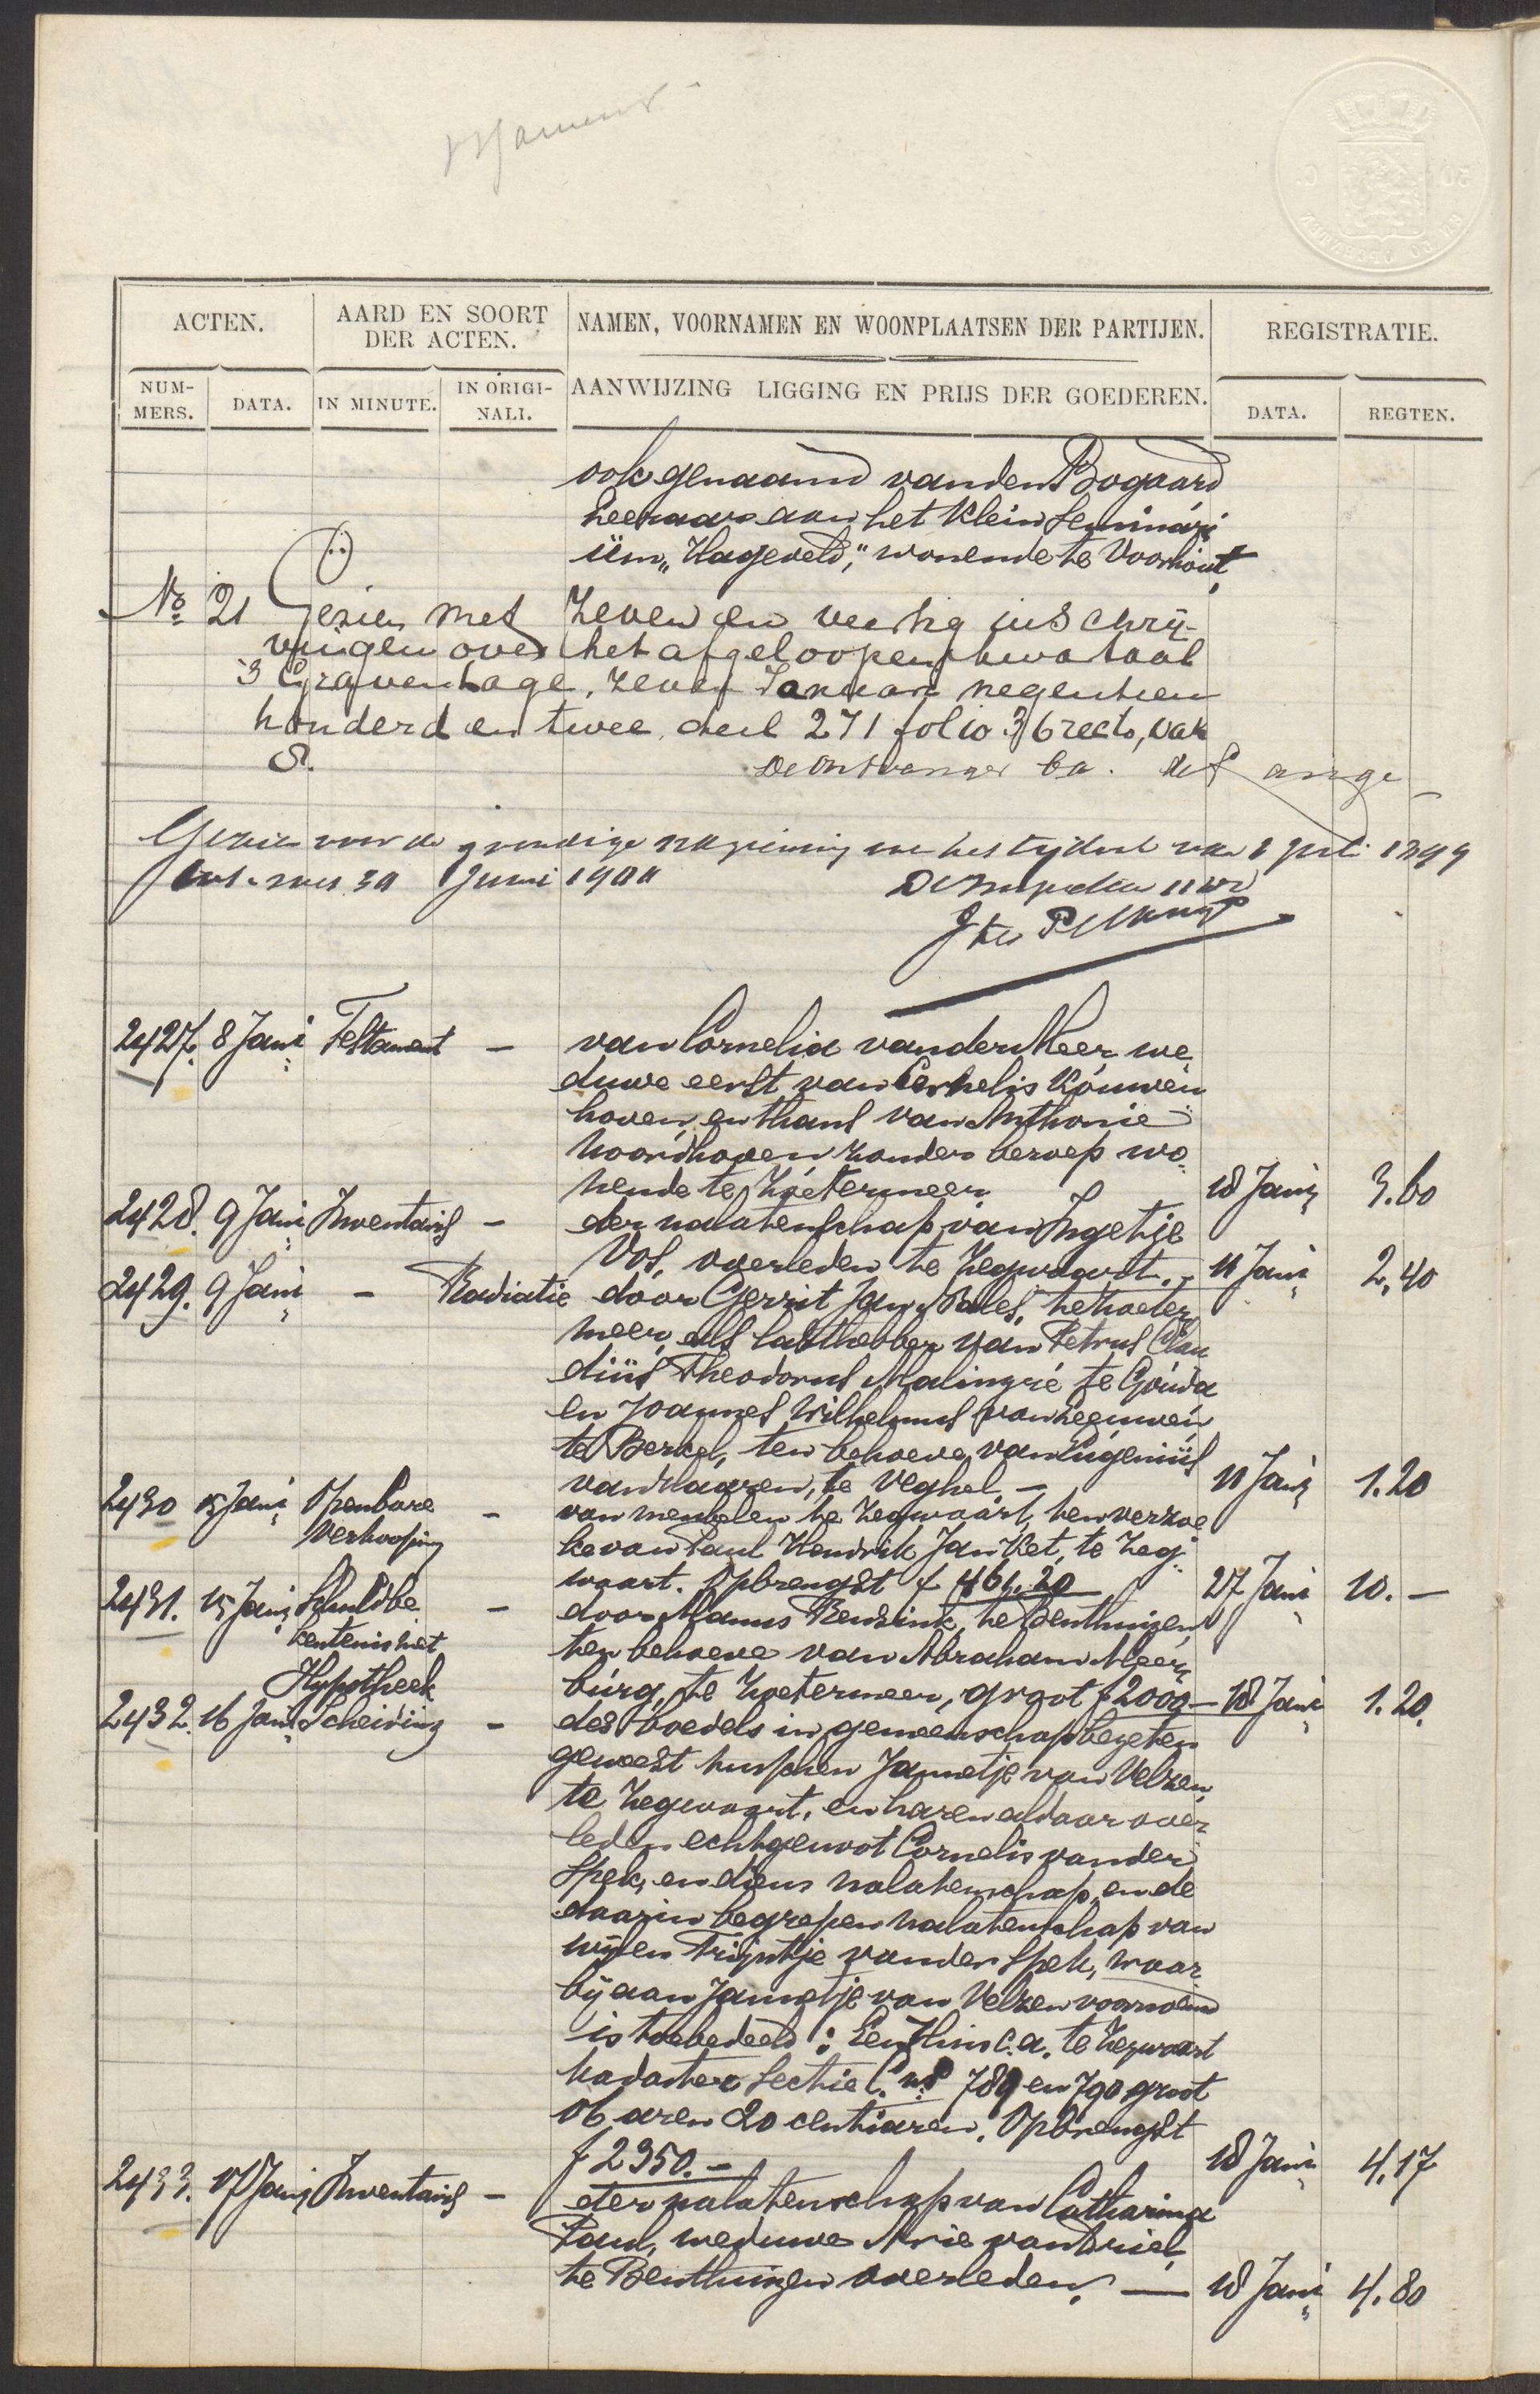 ACTEN.
AARD EN SOORT
DER ACTEN.
NAMEN, VOORNAMEN EN WOONPLAATSEN DER PARTIJEN.
REGISTRATIE.
NUM-
MERS.
DATA.
IN MINUTE.
IN ORIGI-
NALI.
AANWIJZING LIGGING EN PRIJS DER GOEDEREN.
DATA.
REGTEN.
ook genaamd van den Bogaard
Leeraar aan het Klein Seminari
üm „Hageveld," wonende te Voorhout
No 21 Gezien met zeven en veertig inschrij-
vingen over het afgeloopen kwartaal
's Gravenhage, zeven Januari negentien
honderd en twee, deel 271 folio 36 recto, vak
8.
De Ontvanger ba. de Lange
Gezien voor de grondige nazien­ing over het tijdvak van 1 Juli 1899
tot en met 30 Juni 1900
2427. 8 Jani Testament - van Cornelia van der Meer we
duwe eerst van Cornelis Kouwen
hoven, en thans van Anthonie
Noordhoven zonder beroep wo
nende te Zoetermeer. 18 Jani 3.60
2428. 9 Jani Inventaris - der nalatenschap van Ingetje
Vos, overleden te Zegwaart. - 11 Jani 2,40
2429. 9 Jani - Radiatie door Gerrit Jan Bales, te Zoeter
meer, als lasthebber van Petrus Clau
diüs Theodorus Malingré te Gouda
en Joannes Wilhelmus van Leeuwen
te Berkel, ten behoeve van Eugeniüs
van Haaren, te Veghel - 11 Jani 1.20
2430 15 Jani Openbare - van meubelen te Zegwaart, ten verzoe
Verkooping
ke van Paul Hendrik Jan Ket, te Zeg
waart. Opbrengst f 461.20 27 Jani 10.-
2431. 15 Jani Schuldbe - door Manus Rensink, te Benthuizen
kentenis met
ten behoeve van Abraham Meer
Hypotheek
burg, te Zoetermeer, groot f 2000 - 18 Jani 1.20.
2432. 16 Jani Scheiding - des boedels in gemeenschap bezeten
geweest tusschen Jannetje van Velzen,
te Zegwaart, en haren aldaar over
leden echtgenoot Cornelis van der
Spek, en diens nalatenschap, en de
daarin begrepen nalatenschap van
wijlen Trijntje van der Spek, waar
bij aan Jannetje van Velzen voornoemd
is toebedeeld: Een Huis c.a. te Zegwaart
kadaster Sectie C. no 789 en 790 groot
06 aren 20 centiaren. Opbrengst
f 2350.- 18 Jani 4,17
2433. 17 Jani Inventaris - der nalatenschap van Catharina
Paul, weduwe Arie van Driel,
te Benthuizen overleden. - 18 Jani 4.80